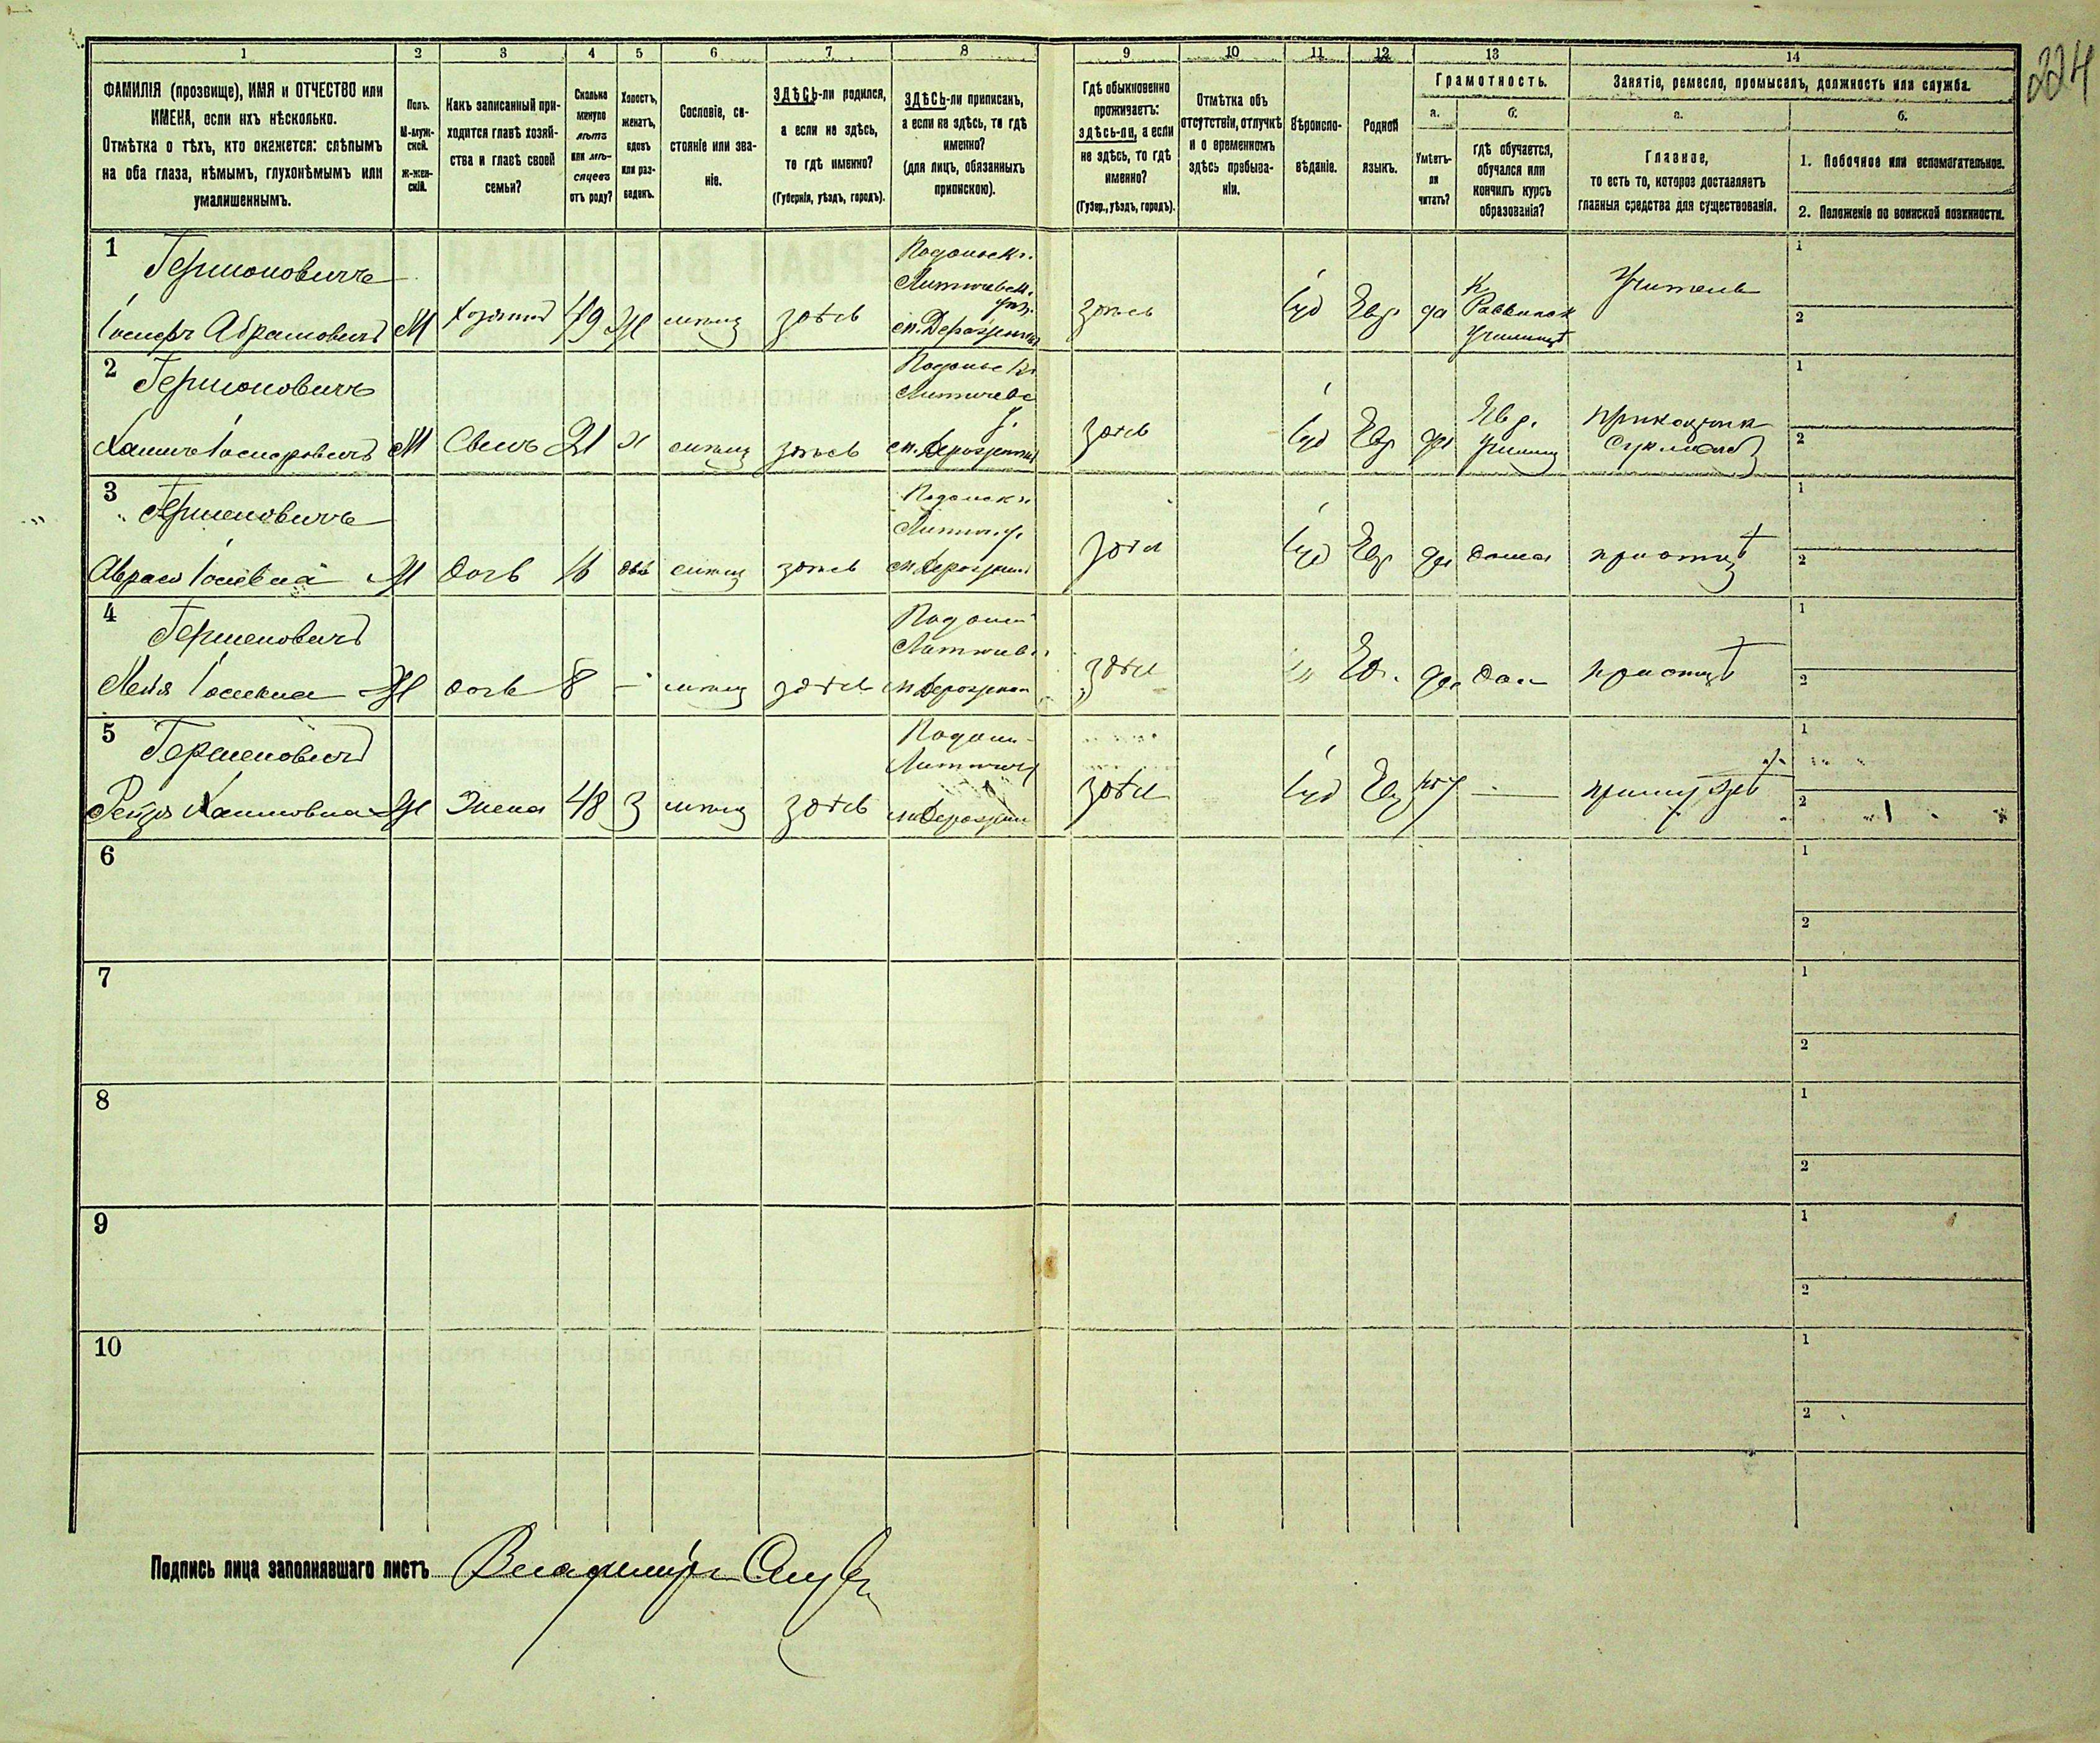 224
1 2 3 4 5 6 7 8 9 10 11 12 13 14
ФАМИЛІЯ (прозвище), ИМЯ и ОТЧЕСТВО или
ИМЕНА, если ихъ нѣсколько.
Отмѣтка о тѣхъ, кто окажется: слѣпымъ
на оба глаза, нѣмымъ, глухонѣмымъ или
умалишеннымъ.
Полъ.
М-муж-
ской.
Ж-жен-
скій.
Какъ записанный при-
ходится главѣ хозяй-
ства и главѣ своей
семьи?
Сколько
минуло
лѣтъ
или мѣ-
сяцевъ
отъ роду?
Холостъ,
женатъ,
вдовъ
или раз-
веденъ.
Сословіе, со-
стояніе или зва-
ніе.
ЗДѢСЬ-ли родился,
а если не здѣсь,
то гдѣ именно?
(Губернія, уѣздъ, городъ).
ЗДѢСЬ-ли приписанъ,
а если не здѣсь, то гдѣ
именно?
(для лицъ, обязанныхъ
припискою).
Гдѣ обыкновенно
проживаетъ:
здѣсь-ли, а если
не здѣсь, то гдѣ
именно?
(Губер., уѣздъ, городъ).
Отмѣтка объ
отсутствіи, отлучкѣ
и о временномъ
здѣсь пребыва-
ніи.
Вѣроиспо-
вѣданіе.
Родной
языкъ.
Грамотность.
а.
Умѣетъ-
ли
читать?
б.
гдѣ обучается,
обучался или
кончилъ курсъ
образованія?
Занятіе, ремесло, промыселъ, должность или служба.
а.
Главное,
то есть то, которое доставляетъ
главныя средства для существованія.
б.
1. Побочное или вспомогательное.
2. Положеніе по воинской повинности.
1
Гершоновичъ
Іосифъ Абрамовичъ М Хозяинъ 49 Ж здѣсь
Подольск.
м. Деражня
здѣсь Іуд Евр. да
Учитель
1
2
2
Гершоновичъ
Хаимъ Іосифовичъ М Сынъ 21 Х здѣсь
м. Деражня
здѣсь Іуд Евр да
Евр.
Училищ
Прикащик
1
2
3
Гершеновичъ
Ж дочь 16 дѣв здѣсь
м. Деражня
здѣсь Іуд Евр да дома при отцѣ
1
2
4
Гершеновичъ
Ж дочь 8 — здѣсь
м. Деражня
здѣсь „ Ев. да при отцѣ
1
2
5
Гершеновичъ
Рейзя Хаимовна Ж Жена 48 З здѣсь
м. Деражня
здѣсь Іуд Ев нѣт — при мужѣ
1
2
6
1
2
7
1
2
8
1
2
9
1
2
10
1
2
Подпись лица заполнявшаго листъ Владиміръ